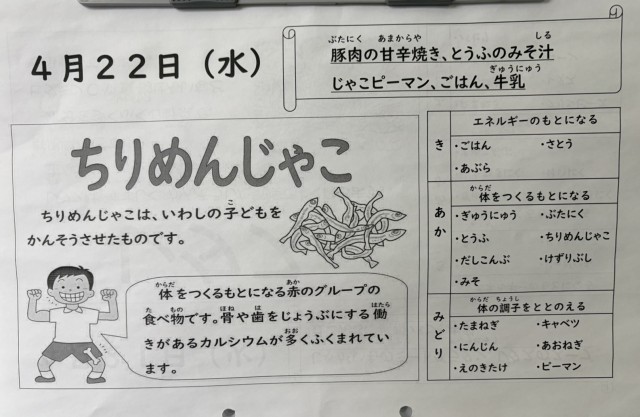 4月22日（水）
ぶたにく あまからや しる
豚肉の甘辛焼き、とうふのみそ汁
ぎゅうにゅう
じゃこピーマン、ごはん、牛乳
ちりめんじゃこ
こ
ちりめんじゃこは、いわしの子どもを
かんそうさせたものです。
からだ あか
体をつくるもとになる赤のグループの
た もの ほね は はたら
食べ物です。骨や歯をじょうぶにする働
おお
きがあるカルシウムが多くふくまれてい
ます。
き
エネルギーのもとになる
・ごはん ・さとう
・あぶら
あか
からだ
体をつくるもとになる
・ぎゅうにゅう ・ぶたにく
・とうふ ・ちりめんじゃこ
・だしこんぶ ・けずりぶし
・みそ
みどり
からだ ちょうし
体の調子をととのえる
・たまねぎ ・キャベツ
・にんじん ・あおねぎ
・えのきたけ ・ピーマン